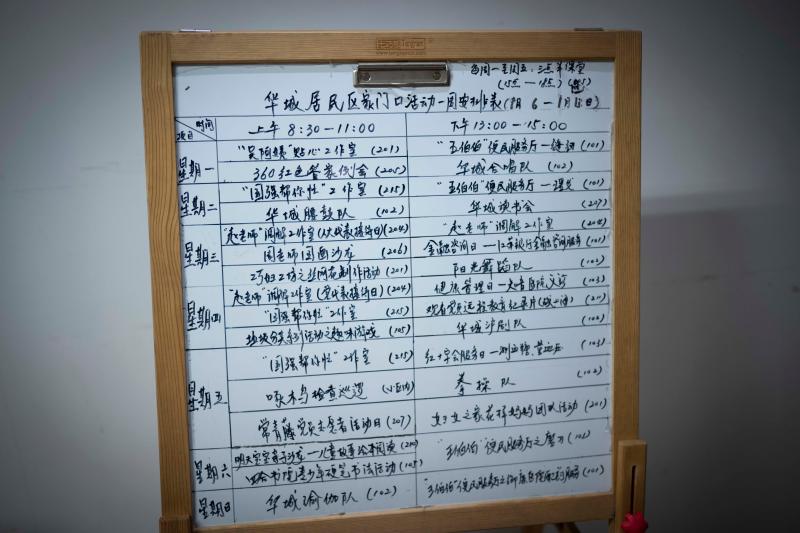 每周一至周五:三点半课堂
华城居民区家门口活动一周安排表
时间
项目
上午 8:30-11:00
下午 13:00-15:00
星期一
"吴阿姨"贴心工作室 (201)
"王伯伯"便民服务厅—缝纫 (101)
360红色管家例会 (205)
华城合唱队 (102)
星期二
"国强帮你忙"工作室 (215)
"王伯伯"便民服务厅—理发 (101)
华城腰鼓队 (102)
华城读书会 (207)
星期三
"赵老师"调解工作室(人大代表接待日)(204)
"赵老师"调解工作室 (204)
周老师国画沙龙 (206)
金融咨询日— (101)
巧妇工坊之丝网花制作活动 (201)
阳光舞蹈队 (102)
星期四
"赵老师"调解工作室(党代表接待日)(204)
健康管理日— (103)
"国强帮你忙"工作室 (215)
观看党员远程教育纪录片 (211)
垃圾分类系列活动之趣味游戏 (105)
华城沪剧队 (102)
星期五
"国强帮你忙"工作室 (215)
红十字会服务日—测血糖、量血压 (103)
啄木鸟检查巡逻 (小区内)
拳操队 (102)
常青藤党员志愿者活动日 (207)
妇女之家花样妈妈团队活动 (201)
星期六
明天宝宝亲子沙龙—儿童故事绘本阅读 (210)
"王伯伯"便民服务厅之磨刀 (101)
书院青少年硬笔书法活动 (105)
星期日
华城瑜伽队 (102)
"王伯伯"便民服务厅之 (101)